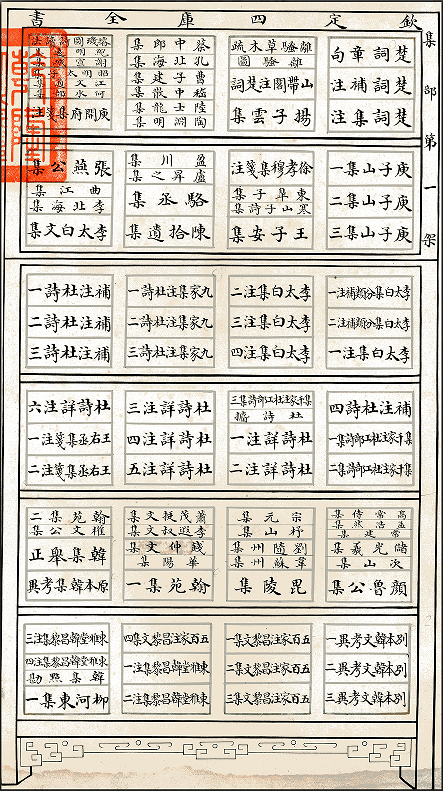 欽定四庫全書
集部第一架
楚詞章句
楚詞補注
楚詞集注
離騷草木疏
離騷圖
山帶閣注楚詞
揚子雲集
蔡中郎集
孔北海集
曹子建集
嵇中散集
陸士龍集
陶淵明集
璇璣圖詩讀法
鮑明遠集
謝宣城集
昭明太子集
江文通集
何水部集
庾開府集箋注
庾子山集一
庾子山集二
庾子山集三
徐孝穆集箋注
東皋子集
寒山子詩集
王子安集
盈川集
盧昇之集
駱丞集
陳拾遺集
張燕公集
曲江集
李北海集
李太白文集
李太白集分類補注一
李太白集分類補注二
李太白集注一
李太白集注二
李太白集注三
李太白集注四
九家集注杜詩一
九家集注杜詩二
九家集注杜詩三
補注杜詩一
補注杜詩二
補注杜詩三
補注杜詩四
集千家注杜工部詩集一
集千家注杜工部詩集二
集千家注杜工部詩集三
杜詩攟
杜詩詳注一
杜詩詳注二
杜詩詳注三
杜詩詳注四
杜詩詳注五
杜詩詳注六
王右丞集箋注一
王右丞集箋注二
高常侍集
孟浩然集
常建集
儲光羲集
次山集
顏魯公集
宗元集
杼山集
劉隨州集
韋蘇州集
毘陵集
蕭茂挺文集
李遐叔文集
錢仲文集
華陽集
翰苑集一
翰苑集二
權文公集
韓集舉正
原本韓集考異
別本韓文考異一
別本韓文考異二
別本韓文考異三
五百家注昌黎文集一
五百家注昌黎文集二
五百家注昌黎文集三
五百家注昌黎文集四
東雅堂韓昌黎集注一
東雅堂韓昌黎集注二
東雅堂韓昌黎集注三
東雅堂韓昌黎集注四
韓集點勘
柳河東集一